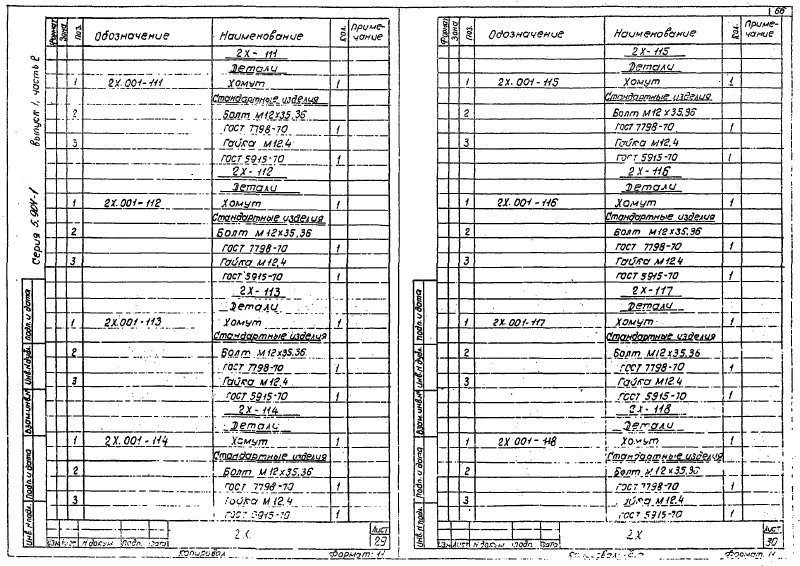 66
Серия 5.904-1 выпуск 1, часть 2
Формат Зона Поз. Обозначение Наименование Кол. Приме-чание
2Х-111
Детали
1 2Х.001-111 Хомут 1
Стандартные изделия
2 Болт М12х35.36
ГОСТ 7798-70 1
3 Гайка М12.4
ГОСТ 5915-70 1
2Х-112
Детали
1 2Х.001-112 Хомут 1
Стандартные изделия
2 Болт М12х35.36
ГОСТ 7798-70 1
3 Гайка М12.4
ГОСТ 5915-70 1
2Х-113
Детали
1 2Х.001-113 Хомут 1
Стандартные изделия
2 Болт М12х35.36
ГОСТ 7798-70 1
3 Гайка М12.4
ГОСТ 5915-70 1
2Х-114
Детали
1 2Х.001-114 Хомут 1
Стандартные изделия
2 Болт М12х35.36
ГОСТ 7798-70 1
3 Гайка М12.4
ГОСТ 5915-70 1
Инв.№ подл. Подп. и дата Взам.инв.№ Инв.№ дубл. Подп. и дата
Изм. Лист № докум. Подп. Дата
2Х
Лист 29
Копировал Формат: 11
Формат Зона Поз. Обозначение Наименование Кол. Приме-чание
2Х-115
Детали
1 2Х.001-115 Хомут 1
Стандартные изделия
2 Болт М12х35.36
ГОСТ 7798-70 1
3 Гайка М12.4
ГОСТ 5915-70 1
2Х-116
Детали
1 2Х.001-116 Хомут 1
Стандартные изделия
2 Болт М12х35.36
ГОСТ 7798-70 1
3 Гайка М12.4
ГОСТ 5915-70 1
2Х-117
Детали
1 2Х.001-117 Хомут 1
Стандартные изделия
2 Болт М12х35.36
ГОСТ 7798-70 1
3 Гайка М12.4
ГОСТ 5915-70 1
2Х-118
Детали
1 2Х.001-118 Хомут 1
Стандартные изделия
2 Болт М12х35.36
ГОСТ 7798-70 1
3 Гайка М12.4
ГОСТ 5915-70 1
Инв.№ подл. Подп. и дата Взам.инв.№ Инв.№ дубл. Подп. и дата
Изм. Лист № докум. Подп. Дата
2Х
Лист 30
Формат: 11